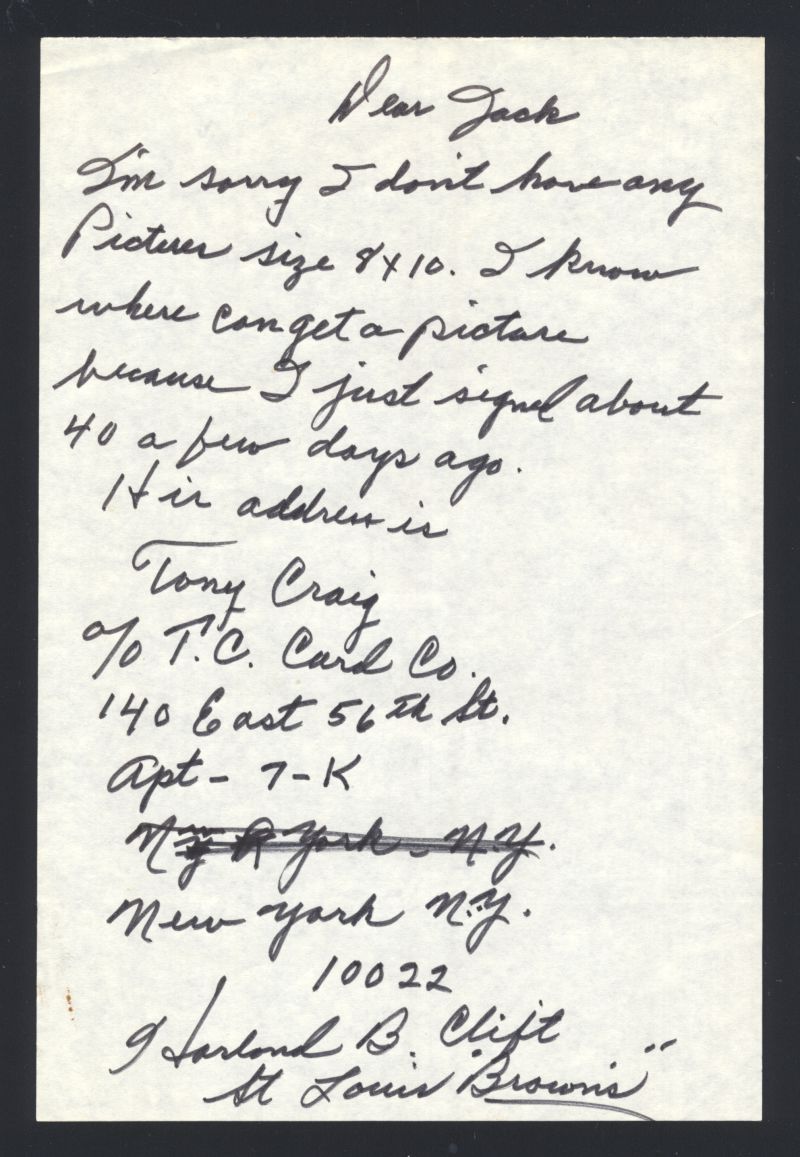 Dear Jack
I'm sorry I don't have any
Pictures size 8x10. I know
where can get a picture
because I just signed about
40 a few days ago.
His address is
Tony Craig
c/o T.C. Card Co.
140 East 56th St.
Apt - 7-K
York - N.Y.
New York N.Y.
10022
Harlond B. Clift
St Louis "Browns"